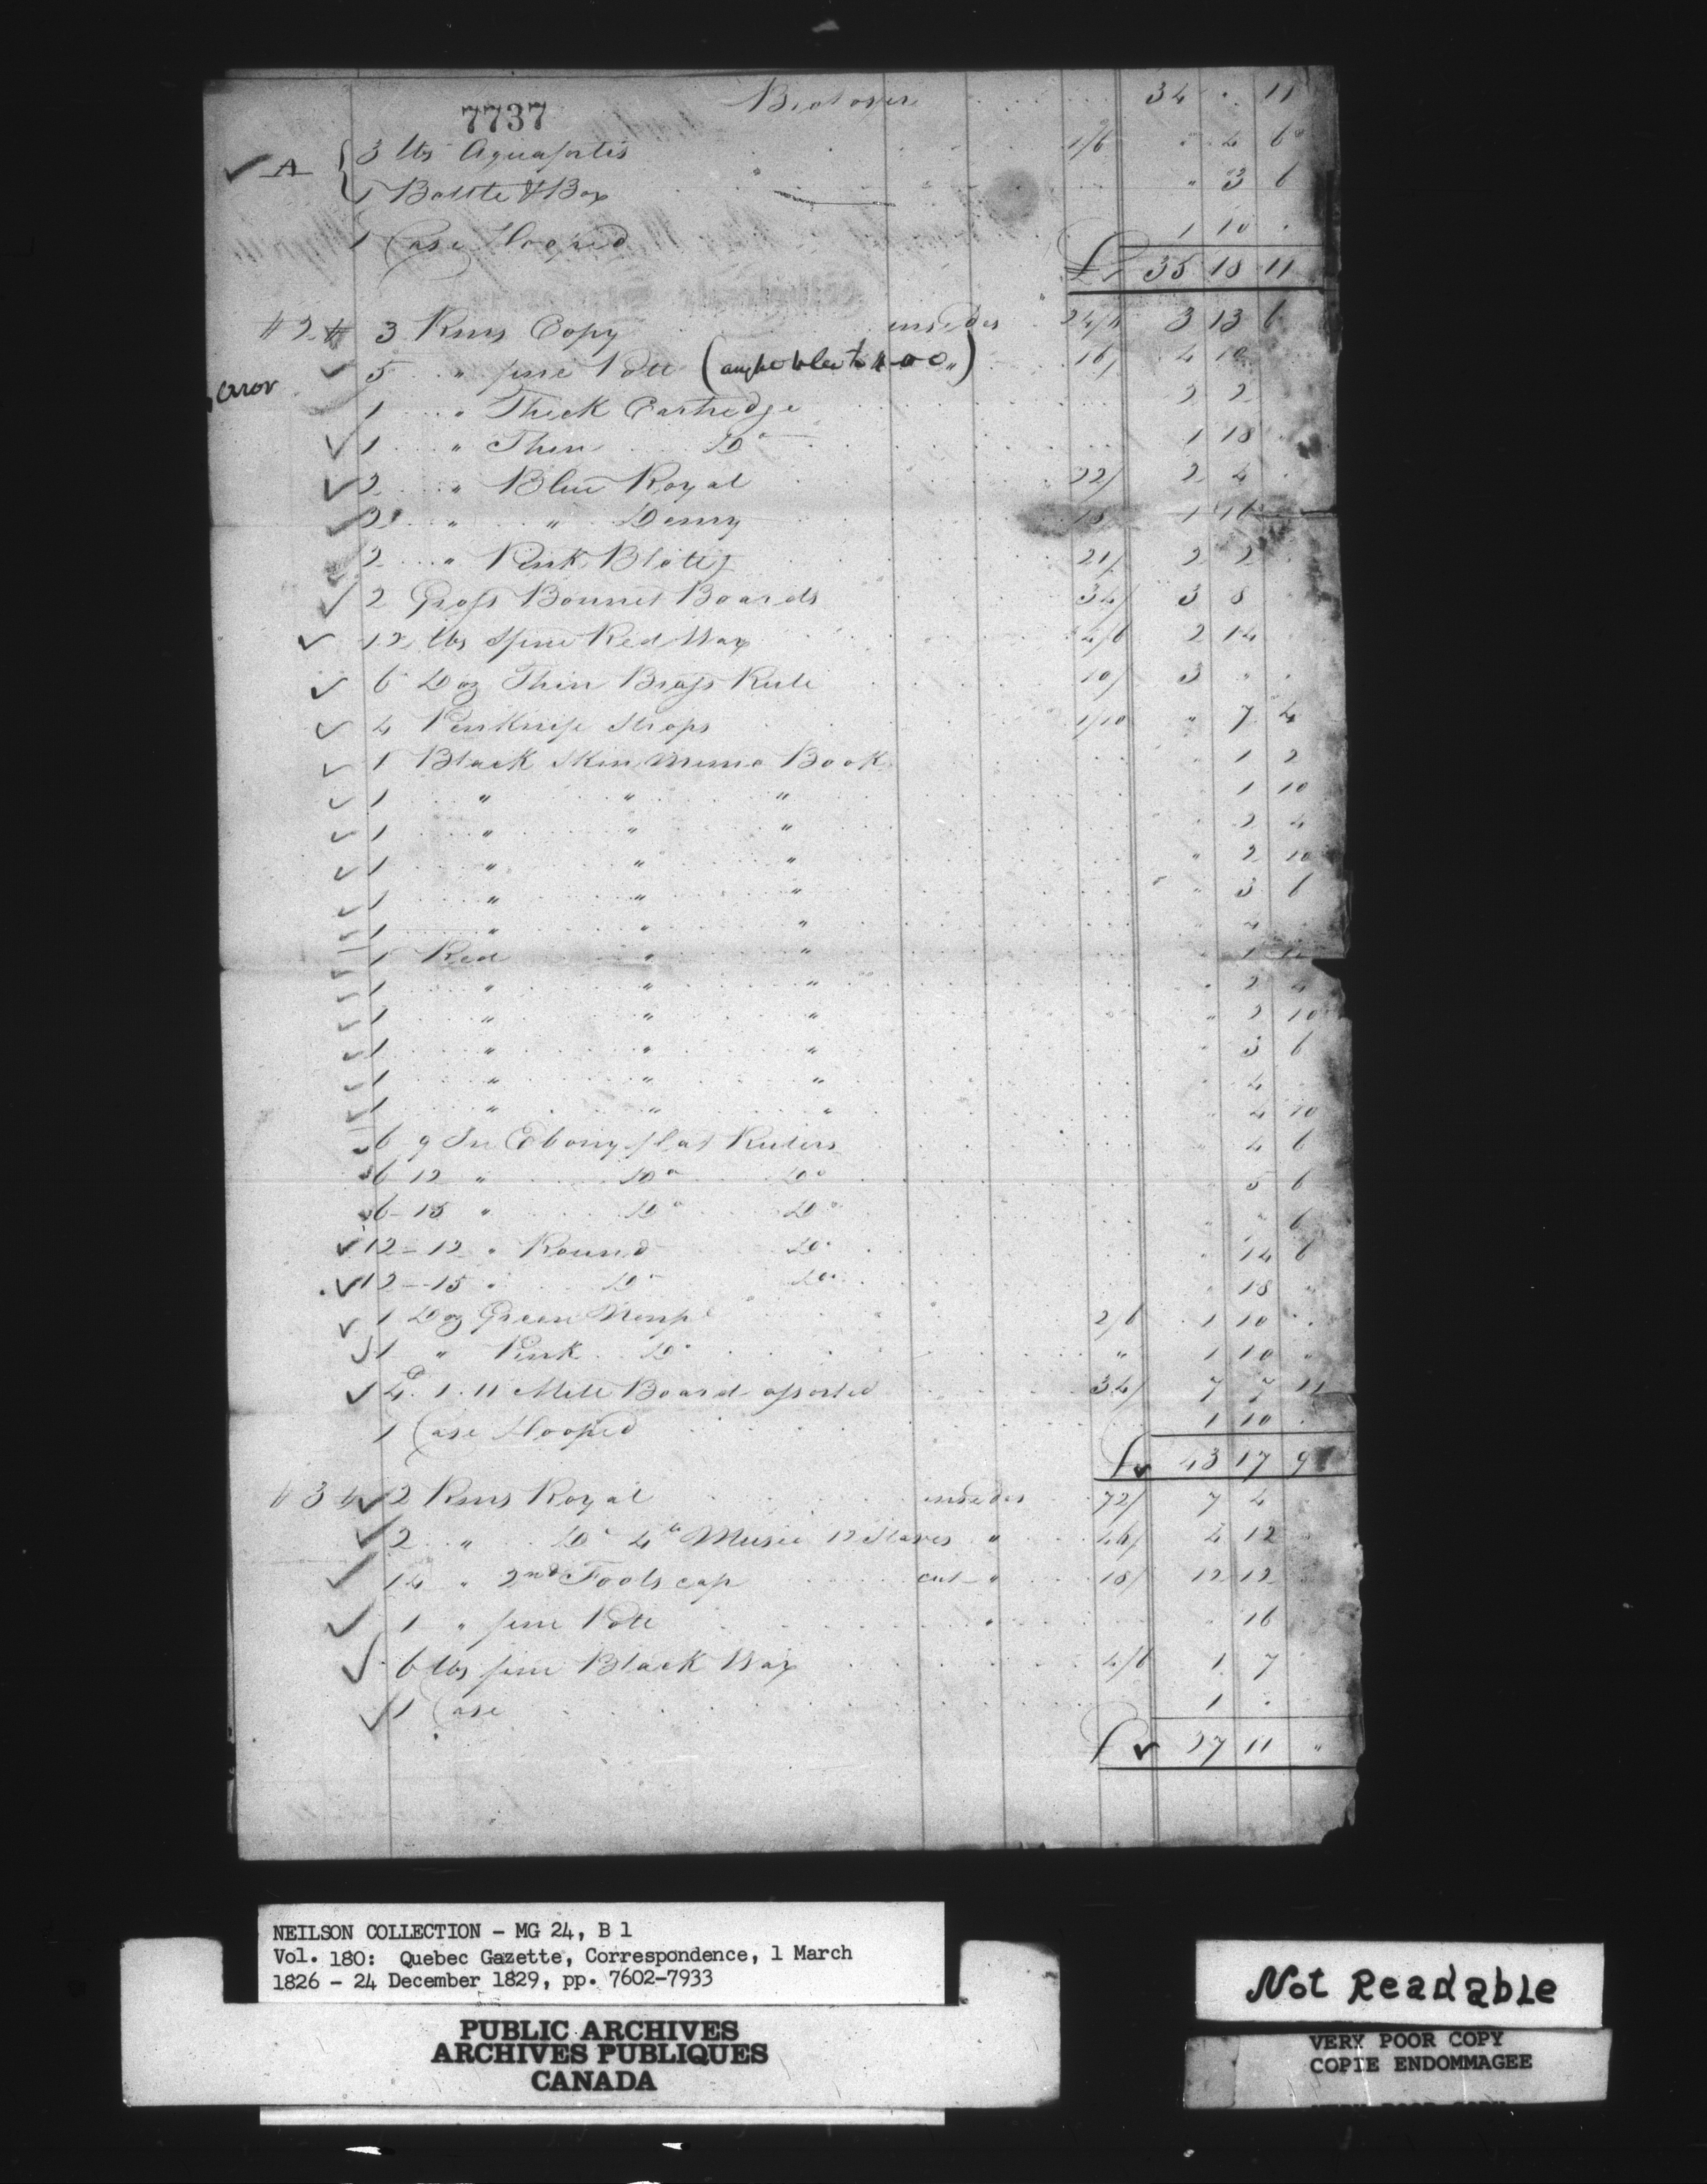 7737
Brot over 34 . 11
✓ A { 3 lbs Aquafortis 1/6 " 4 6
1 Bottle & Box " 3 6
1 Case Hooped 1 10 .
£ 35 18 11
# 2 # 3 Rms Copy insides 24/6 3 13 6
✓ 5 " fine Pott ( 16/ 4 10
error
1 " Thick Cartridge 2 2
✓ 1 " Thin Do 1 18
✓ 2 " Blue Royal 22/ 2 4
✓ 2 " " Demy
✓ 2 " Pink Blottg 21/ 2 2
✓ 2 Gross Bonnet Boards 34/ 3 8
✓ 12 lbs fine Red Wax 4/6 2 14
✓ 6 Doz Thin Brass Rule 10/ 3 "
✓ 4 Penknife Strops 1/10 " 7 4
✓ 1 Black Skin Memo Book " 1 2
✓ 1 " " " 1 10
✓ 1 " " " 2 4
✓ 1 " " " " 2 10
✓ 1 " " " " 3 6
✓ 1 " " " 4
✓ 1 Red " " 1
✓ 1 " " " " 2 4
✓ 1 " " " " 2 10
✓ 1 " " " " 3 6
✓ 1 " " " " 4
✓ 1 " " " " 4 10
✓ 6 9 In Ebony flat Rulers " 4 6
✓ 6 12 " Do Do 5 6
✓ 6 - 15 " Do Do " " 6
✓ 12 - 12 " Round Do 14 6
✓ 12 - 15 " Do Do " 18 "
✓ 1 Doz Green 2/6 1 10
✓ 1 " Pink Do " 1 10 "
✓ 4. 1. 11 Mill Board assorted 34/ 7 7 11
1 Case Hooped 1 10 .
£ ✓ 43 17 9
# 3 # ✓ 2 Rms Royal insides 72/ 7 4
✓ 2 " Do 4to Music 12 Staves " 46/ 4 12
✓ 14 " 2nd Foolscap cut " 18/ 12 12
✓ 1 " fine Pott " 16
✓ 6 lbs fine Black Wax 4/6 1 7
✓ 1 Case 1 .
£ ✓ 27 11 "
NEILSON COLLECTION - MG 24, B 1
Vol. 180: Quebec Gazette, Correspondence, 1 March
1826 - 24 December 1829, pp. 7602-7933
PUBLIC ARCHIVES
ARCHIVES PUBLIQUES
CANADA
Not Readable
VERY POOR COPY
COPIE ENDOMMAGEE